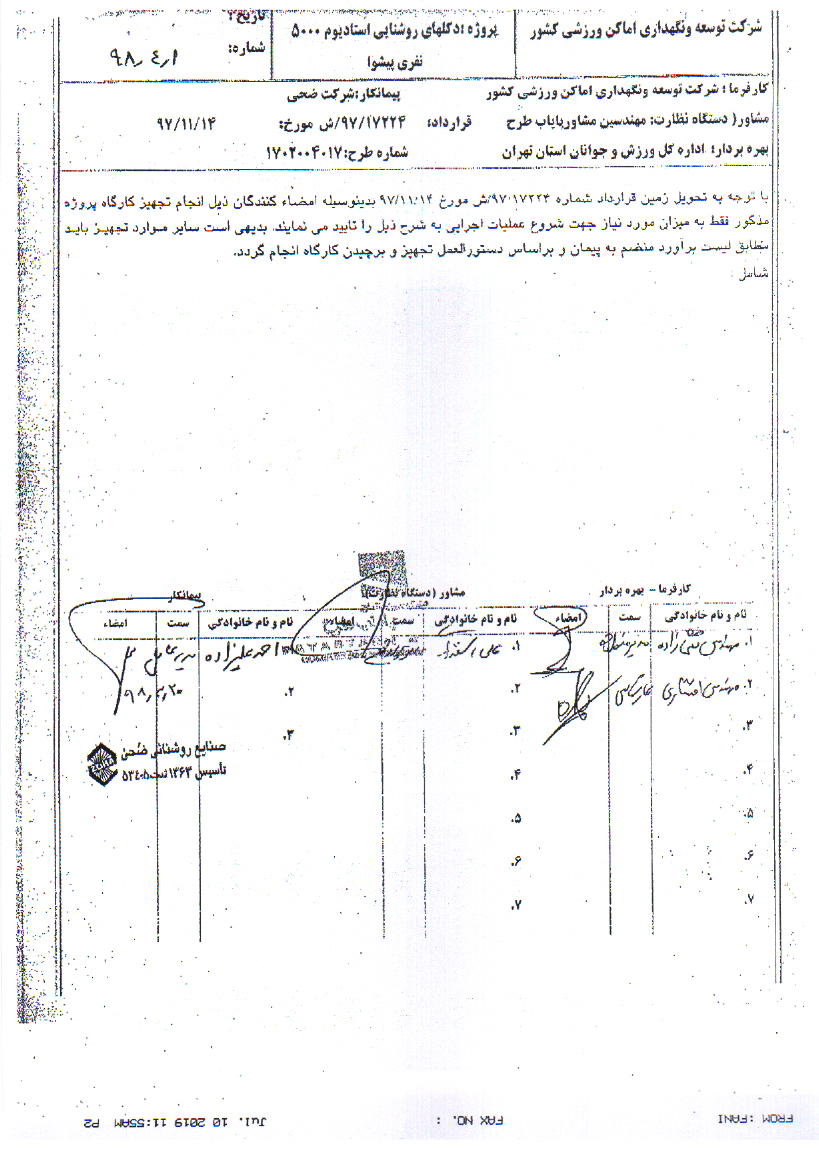 شرکت توسعه ونگهداری اماکن ورزشی کشور
پروژه :دکلهای روشنایی استادیوم ۵۰۰۰
نفری پیشوا
تاریخ:
شماره:
۹۸٫۴٫۱
کارفرما : شرکت توسعه ونگهداری اماکن ورزشی کشور پیمانکار:شرکت ضحی
مشاور( دستگاه نظارت: مهندسین مشاورپایاب طرح قرارداد: ۹۷/۱۷۲۲۴/ش مورخ: ۹۷/۱۱/۱۴
بهره بردار: اداره کل ورزش و جوانان استان تهران شماره طرح:۱۷۰۲۰۰۴۰۱۷
با توجه به تحویل زمین قرارداد شماره ۹۷/۱۷۲۲۴/ش مورخ ۹۷/۱۱/۱۴ بدینوسیله امضاء کنندگان ذیل انجام تجهیز کارگاه پروژه
مذکور فقط به میزان مورد نیاز جهت شروع عملیات اجرایی به شرح ذیل را تایید می نمایند. بدیهی است سایر موارد تجهیز باید
مطابق لیست برآورد منضم به پیمان و براساس دستورالعمل تجهیز و برچیدن کارگاه انجام گردد.
شامل :
کارفرما – بهره بردار مشاور (دستگاه نظارت) پیمانکار
نام و نام خانوادگی سمت امضاء نام و نام خانوادگی سمت امضاء نام و نام خانوادگی سمت امضاء
۱. مهندس ۱. علی احمد علیزاده مدیرعامل
۲. مهندس افشاری ۲. ۲. ۹۸٫۴٫۲۰
۳. ۳. ۳.
صنایع روشنائی ضحی
تأسیس ۱۳۶۳ ثبت ۵۳۴۰۵
۴. ۴.
۵. ۵.
۶. ۶.
۷. ۷.
FROM :FANI FAX NO. : Jul. 10 2019 11:55AM P2